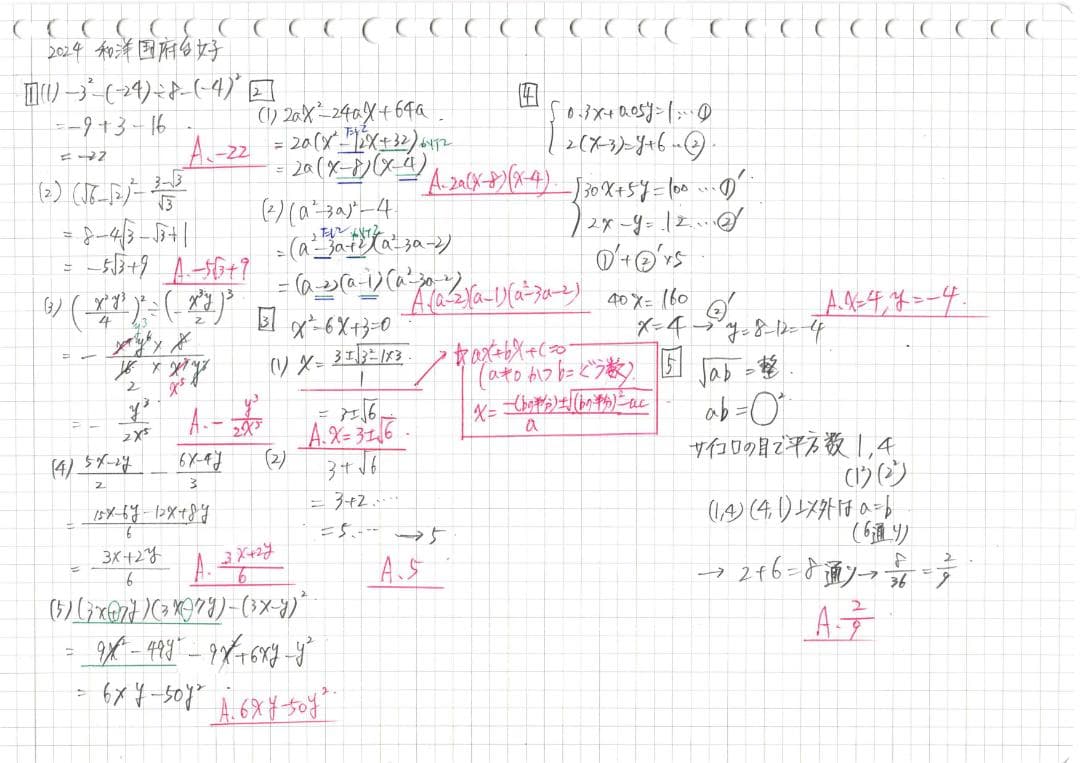 2024 和洋国府台女子
1 (1) -3²-(-24)÷8-(-4)²
= -9+3-16
= -22
A. -22
(2) (√6-√2)²-(3-√3)/√3
= 8-4√3-√3+1
= -5√3+9 A. -5√3+9
(3) (x²y³/4)²÷(-x³y/2)³
= - x⁴y⁶ × 8 / 16 × x⁹y³
y³
2 x⁵
= - y³/2x⁵ A. - y³/2x⁵
(4) (5x-2y)/2 - (6x-4y)/3
= (15x-6y-12x+8y)/6
= (3x+2y)/6 A. (3x+2y)/6
(5) (3x+7y)(3x-7y)-(3x-y)²
= 9x²-49y²-9x²+6xy-y²
= 6xy-50y² A. 6xy-50y²
2
(1) 2ax²-24ax+64a
= 2a(x²-12x+32)
= 2a(x-8)(x-4)
A. 2a(x-8)(x-4)
(2) (a²-3a)²-4
= (a²-3a+2)(a²-3a-2)
= (a-2)(a-1)(a²-3a-2)
A. (a-2)(a-1)(a²-3a-2)
3 x²-6x+3=0
(1) x = (3±√3²-1×3)/1
= 3±√6
A. x=3±√6
☆ ax²+bx+c=0
(a≠0 かつ b=ぐう数)
x = (-(bの半分)±√(bの半分)²-ac)/a
(2) 3+√6
= 3+2.…
= 5.… → 5
A. 5
4
{ 0.3x+0.05y=1 … ①
2(x-3)=y+6 … ②
{ 30x+5y=100 … ①′
2x-y=12 … ②′
①′+②′×5
40x=160
x=4 →②′ y=8-12=-4
A. x=4, y=-4
5 √ab = 整
ab=○²
サイコロの目で平方数 1, 4
(1²) (2²)
(1,4) (4,1) 以外は a=b
(6通り)
→ 2+6=8通り→ 8/36 = 2/9
A. 2/9